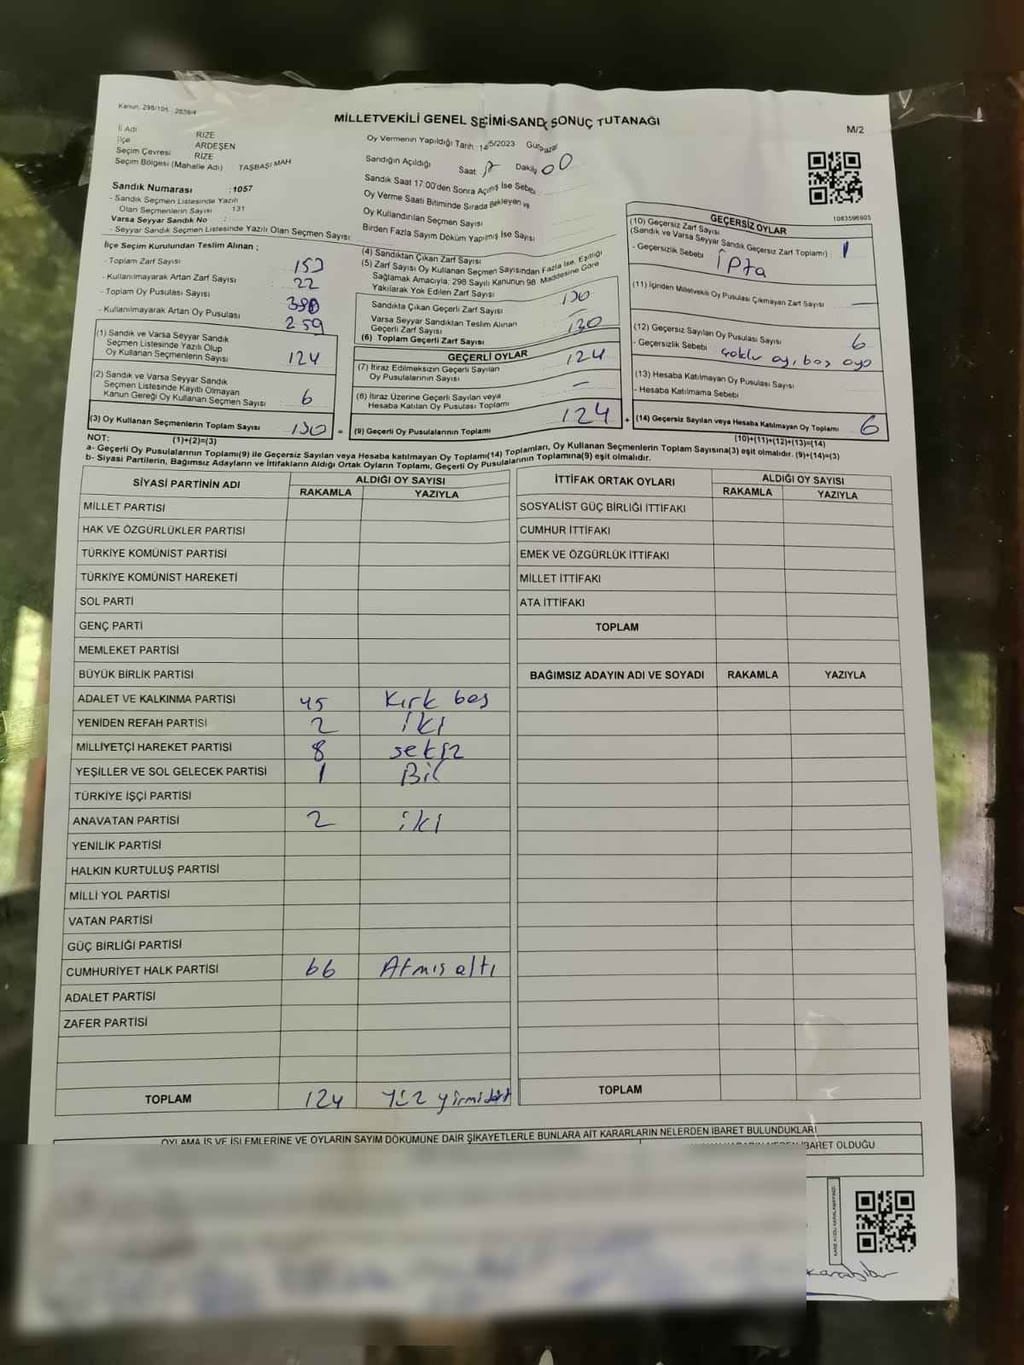 MİLLETVEKİLİ GENEL SEÇİMİ SANDIK SONUÇ TUTANAĞI
M/2
İl Adı RİZE
İlçe ARDEŞEN
Seçim Çevresi RİZE
Seçim Bölgesi (Mahalle Adı) TAŞBAŞI MAH
Sandık Numarası : 1057
- Sandık Seçmen Listesinde Yazılı
Olan Seçmenlerin Sayısı : 131
Varsa Seyyar Sandık No :
- Seyyar Sandık Seçmen Listesinde Yazılı Olan Seçmen Sayısı :
Oy Vermenin Yapıldığı Tarih
Sandığın Açıldığı Saat 17 Dakika 00
Sandık Saat 17:00'den Sonra Açılmış İse Sebebi
Oy Verme Saati Bitiminde Sırada Bekleyen ve
Oy Kullandırılan Seçmen Sayısı
Birden Fazla Sayım Döküm Yapılmış İse Sayısı
1083596605
İlçe Seçim Kurulundan Teslim Alınan ;
- Toplam Zarf Sayısı
- Kullanılmayarak Artan Zarf Sayısı 22
- Toplam Oy Pusulası Sayısı
- Kullanılmayarak Artan Oy Pusulası 259
(1) Sandık ve Varsa Seyyar Sandık
Seçmen Listesinde Yazılı Olup
Oy Kullanan Seçmenlerin Sayısı 124
(2) Sandık ve Varsa Seyyar Sandık
Seçmen Listesinde Kayıtlı Olmayan
Kanun Gereği Oy Kullanan Seçmen Sayısı 6
(3) Oy Kullanan Seçmenlerin Toplam Sayısı 130
(4) Sandıktan Çıkan Zarf Sayısı
(5) Zarf Sayısı Oy Kullanan Seçmen Sayısından Fazla İse, Eşitliği
Sağlamak Amacıyla; 298 Sayılı Kanunun 98. Maddesine Göre
Yakılarak Yok Edilen Zarf Sayısı
Sandıkta Çıkan Geçerli Zarf Sayısı 130
Varsa Seyyar Sandıktan Teslim Alınan
Geçerli Zarf Sayısı —
(6) Toplam Geçerli Zarf Sayısı 130
GEÇERLİ OYLAR
(7) İtiraz Edilmeksizin Geçerli Sayılan
Oy Pusulalarının Sayısı 124
(8) İtiraz Üzerine Geçerli Sayılan veya
Hesaba Katılan Oy Pusulası Toplamı —
(9) Geçerli Oy Pusulalarının Toplamı 124
GEÇERSİZ OYLAR
(10) Geçersiz Zarf Sayısı
(Sandık ve Varsa Seyyar Sandık Geçersiz Zarf Toplamı) : 1
- Geçersizlik Sebebi
(11) İçinden Milletvekili Oy Pusulası Çıkmayan Zarf Sayısı —
(12) Geçersiz Sayılan Oy Pusulası Sayısı 6
- Geçersizlik Sebebi : çoklu oy, boş oy
(13) Hesaba Katılmayan Oy Pusulası Sayısı
- Hesaba Katılmama Sebebi
(14) Geçersiz Sayılan veya Hesaba Katılmayan Oy Toplamı 6
NOT: (1)+(2)=(3)
(10)+(11)+(12)+(13)=(14)
a- Geçerli Oy Pusulalarının Toplamı(9) ile Geçersiz Sayılan veya Hesaba katılmayan Oy Toplamı(14) Toplamları, Oy Kullanan Seçmenlerin Toplam Sayısına(3) eşit olmalıdır. (9)+(14)=(3)
b- Siyasi Partilerin, Bağımsız Adayların ve İttifakların Aldığı Ortak Oyların Toplamı, Geçerli Oy Pusulalarının Toplamına(9) eşit olmalıdır.
SİYASİ PARTİNİN ADI ALDIĞI OY SAYISI
RAKAMLA YAZIYLA
MİLLET PARTİSİ
HAK VE ÖZGÜRLÜKLER PARTİSİ
TÜRKİYE KOMÜNİST PARTİSİ
TÜRKİYE KOMÜNİST HAREKETİ
SOL PARTİ
GENÇ PARTİ
MEMLEKET PARTİSİ
BÜYÜK BİRLİK PARTİSİ
ADALET VE KALKINMA PARTİSİ 45 Kırk beş
YENİDEN REFAH PARTİSİ 2 iki
MİLLİYETÇİ HAREKET PARTİSİ 8 sekiz
YEŞİLLER VE SOL GELECEK PARTİSİ 1 Bir
TÜRKİYE İŞÇİ PARTİSİ
ANAVATAN PARTİSİ 2 iki
YENİLİK PARTİSİ
HALKIN KURTULUŞ PARTİSİ
MİLLİ YOL PARTİSİ
VATAN PARTİSİ
GÜÇ BİRLİĞİ PARTİSİ
CUMHURİYET HALK PARTİSİ 66 Atmış altı
ADALET PARTİSİ
ZAFER PARTİSİ
TOPLAM 124 Yüz yirmidört
İTTİFAK ORTAK OYLARI ALDIĞI OY SAYISI
RAKAMLA YAZIYLA
SOSYALİST GÜÇ BİRLİĞİ İTTİFAKI
CUMHUR İTTİFAKI
EMEK VE ÖZGÜRLÜK İTTİFAKI
MİLLET İTTİFAKI
ATA İTTİFAKI
TOPLAM
BAĞIMSIZ ADAYIN ADI VE SOYADI RAKAMLA YAZIYLA
TOPLAM
OYLAMA İŞ VE İŞLEMLERİNE VE OYLARIN SAYIM DÖKÜMÜNE DAİR ŞİKAYETLERLE BUNLARA AİT KARARLARIN NELERDEN İBARET BULUNDUKLARI
İBARET OLDUĞU